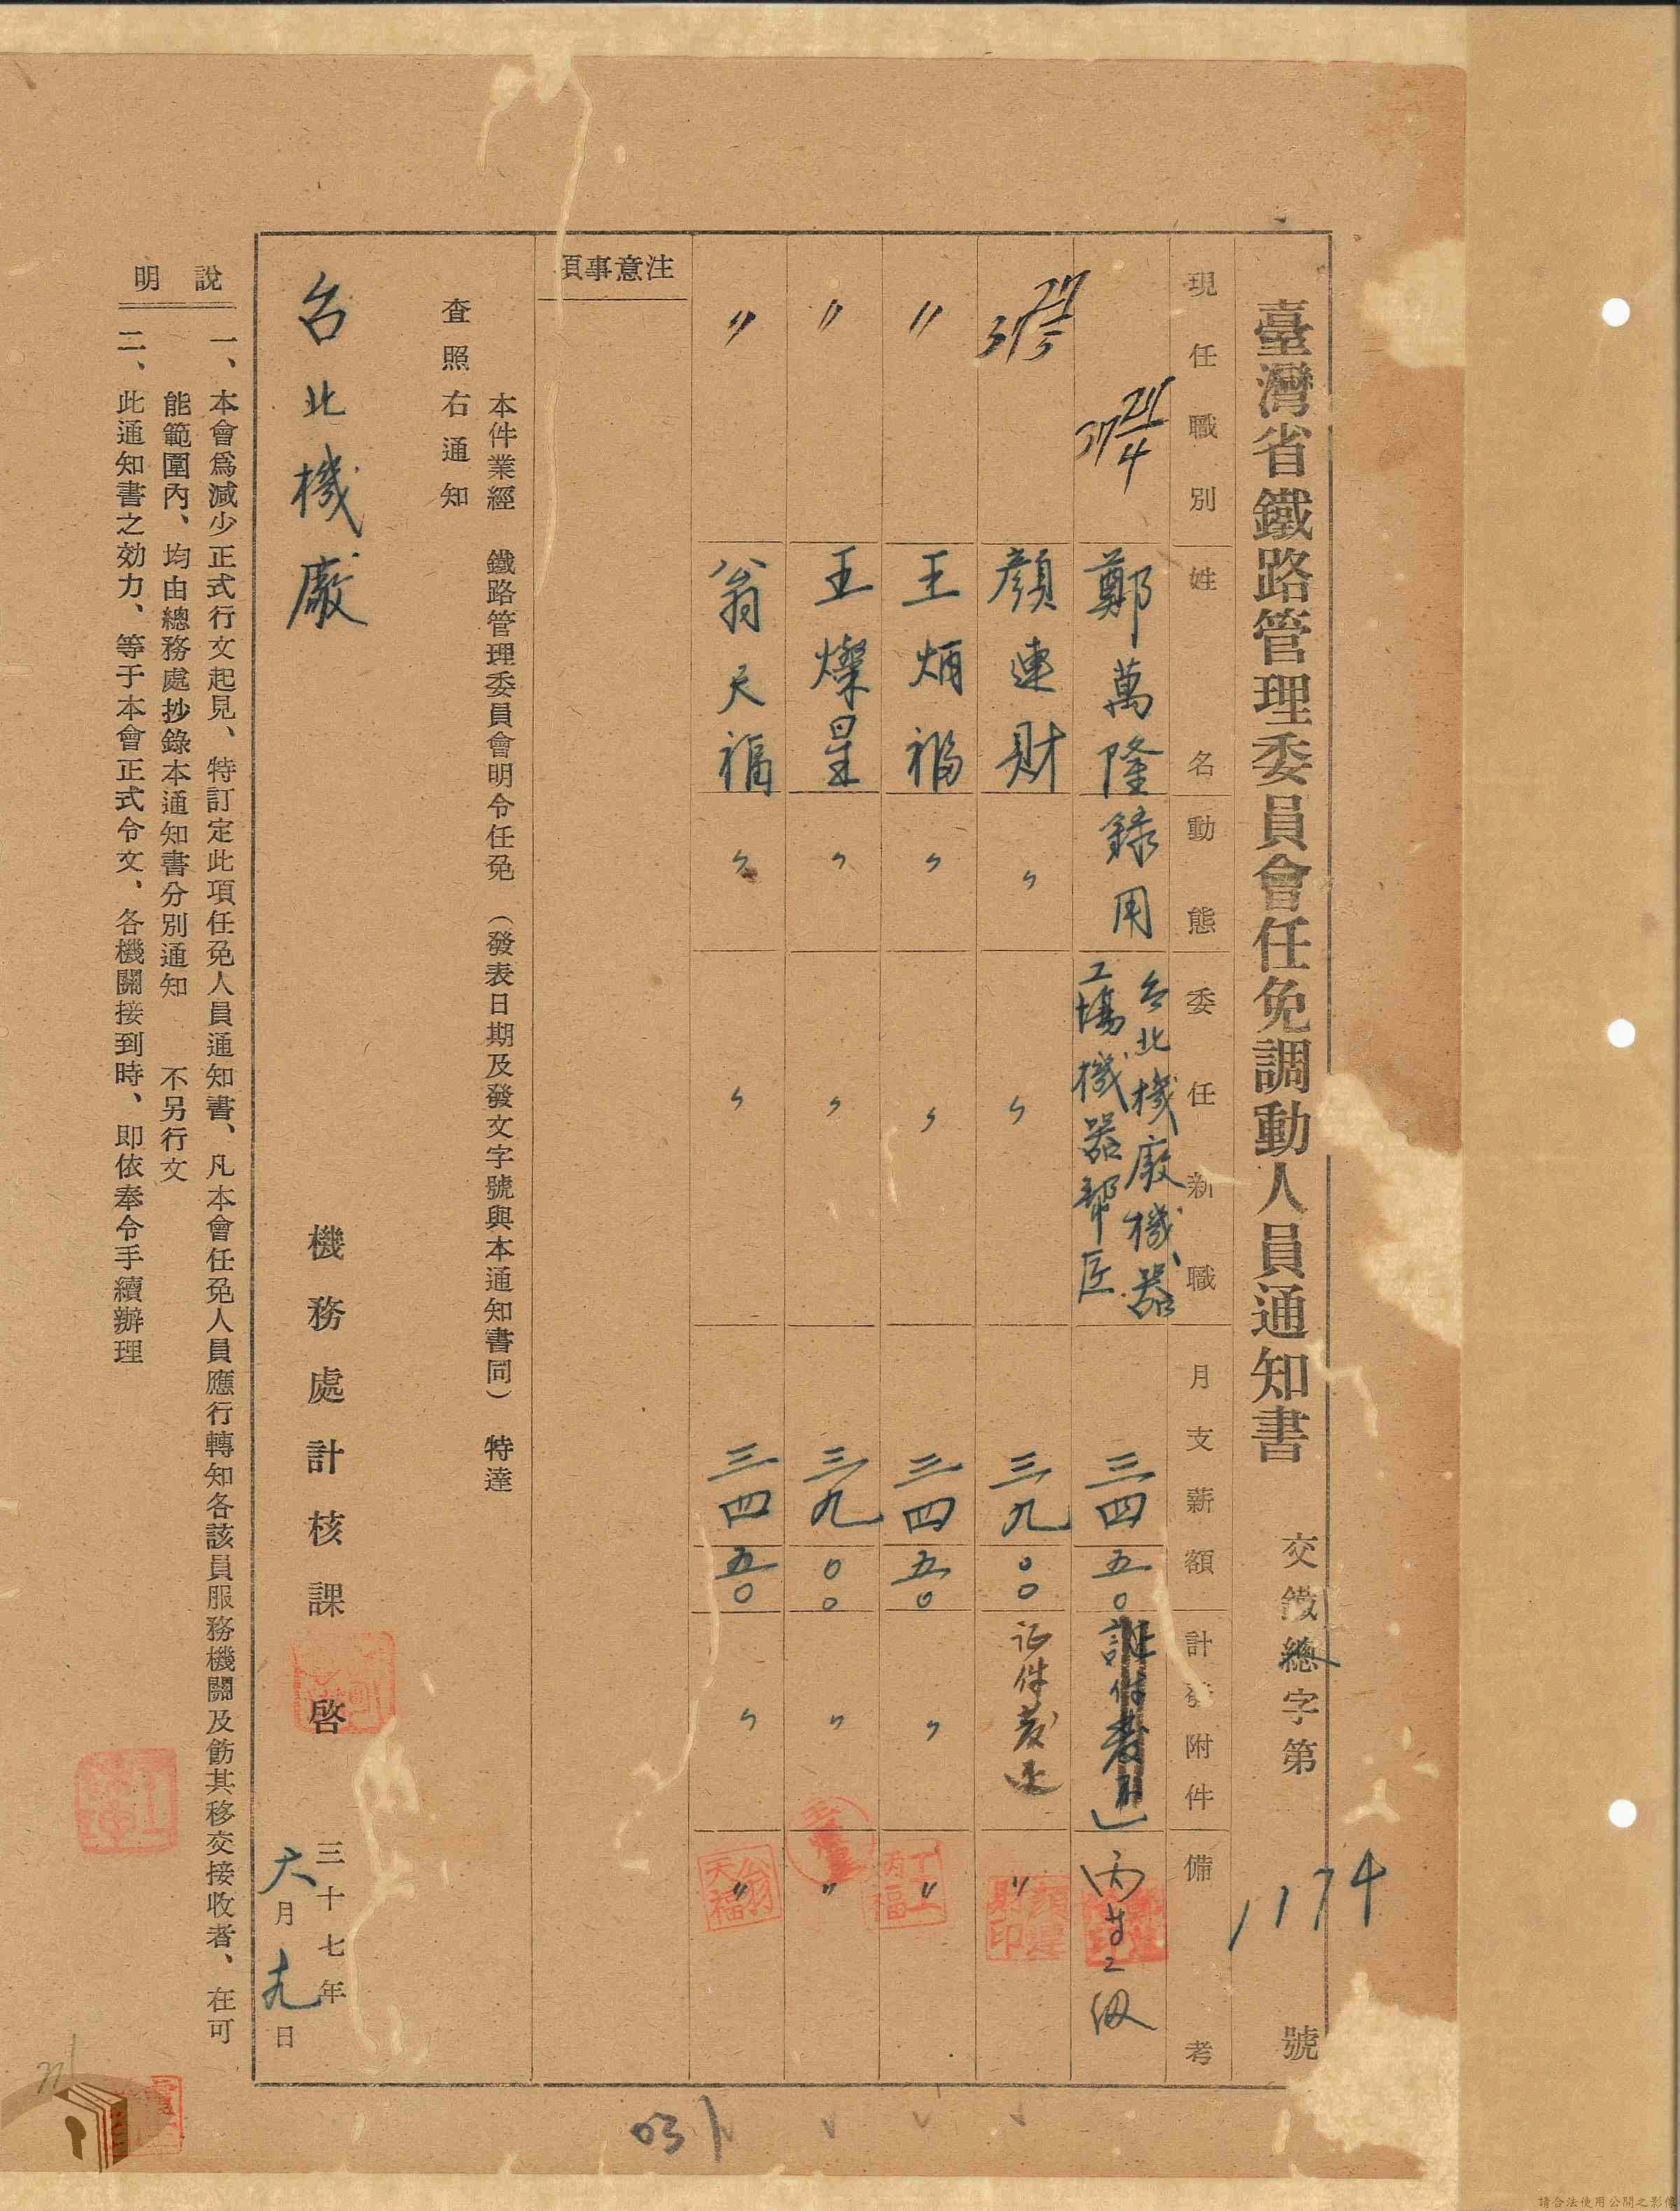 臺灣省鐵路管理委員會任免調動人員通知書
交鐵總字第1174號
現任職別
姓名
動態
委任新職
月支薪額
計發附件
備考
37 21/4
鄭萬隆
錄用
台北機廠機器
工場機器幫匠
三四
五〇
證件發還
丙等2級
顏連財
〃
〃
三九
〇〇
证件發還
〃
〃
王炳福
〃
〃
三四
五〇
〃
〃
〃
王燦星
〃
〃
三九
〇〇
〃
〃
〃
翁天福
〃
〃
三四
五〇
〃
〃
注意事項
本件業經 鐵路管理委員會明令任免 (發表日期及發文字號與本通知書同) 特達
查照右通知
台北機廠
機務處計核課 啓
三十七年
六月 九日
說明
一、本會爲減少正式行文起見、特訂定此項任免人員通知書、凡本會任免人員應行轉知各該員服務機關及飭其移交接收者、在可
能範圍內、均由總務處抄錄本通知書分別通知 不另行文
二、此通知書之効力、等于本會正式令文、各機關接到時、即依奉令手續辦理
翁天福
顏連財印
031
請合法使用公開之影像